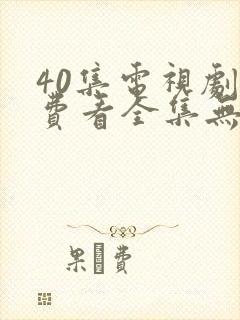 40集電視劇
費看全集無
果 費